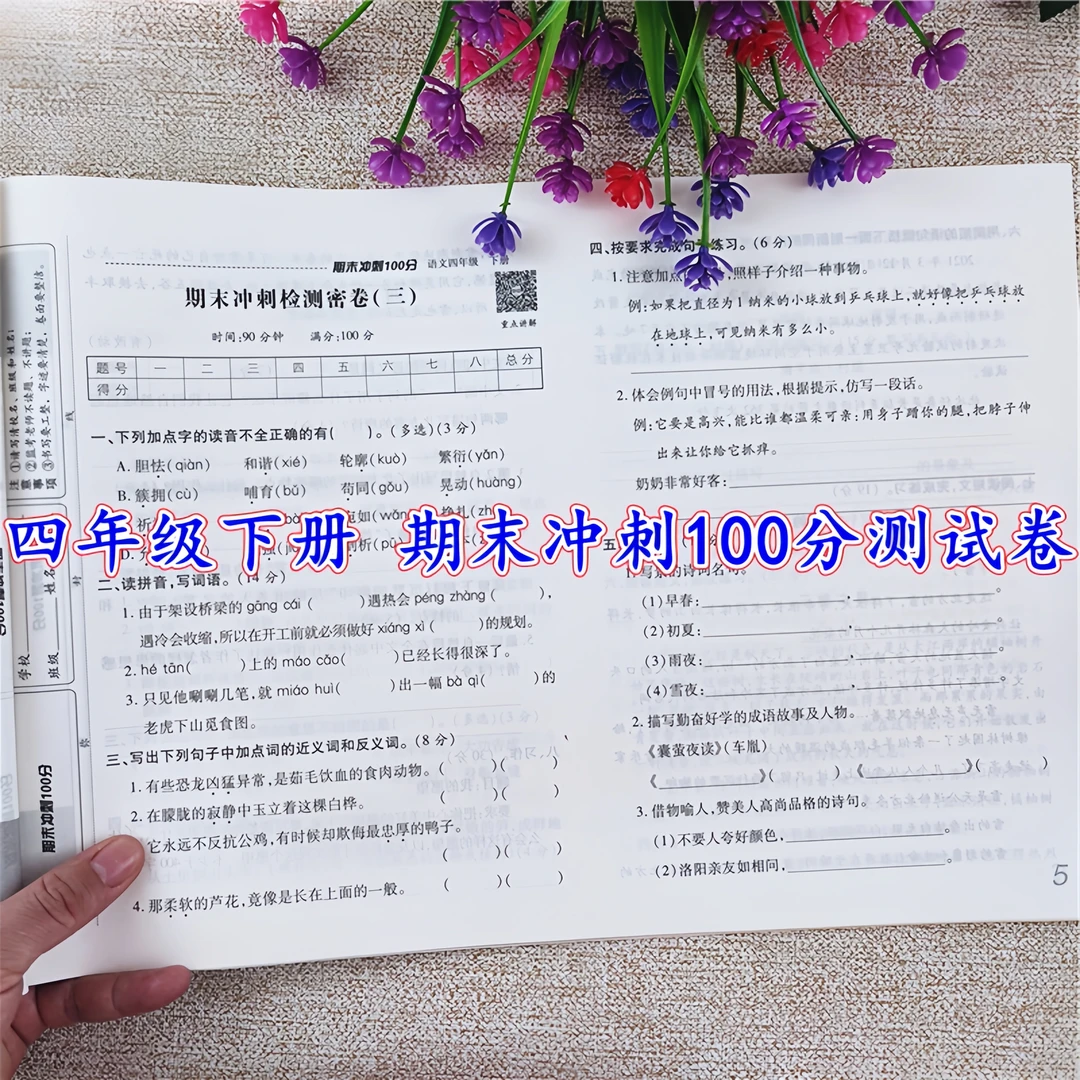 期末冲刺100分 语文四年级 下册
期末冲刺检测密卷(三)
时间:90分钟 满分:100分
重点讲解
题号 一 二 三 四 五 六 七 八 总分
得分
一、下列加点字的读音不全正确的有( )。(多选)(3分)
A. 胆怯(qiàn) 和谐(xié) 轮廓(kuò) 繁衍(yǎn)
B. 簇拥(cù) 哺育(bǔ) 苟同(gǒu) 晃动(huàng)
四年级下册 期末冲刺100分测试卷
二、读拼音,写词语。(14分)
1. 由于架设桥梁的 gāng cái ( )遇热会 péng zhàng ( ),
遇冷会收缩,所以在开工前就必须做好 xiáng xì ( )的规划。
2. hé tān( )上的 máo cǎo( )已经长得很深了。
3. 只见他唰唰几笔,就 miáo huì( )出一幅 bà qì( )的
老虎下山觅食图。
三、写出下列句子中加点词的近义词和反义词。(8分)
1. 有些恐龙凶猛异常,是茹毛饮血的食肉动物。( )( )
2. 在朦胧的寂静中玉立着这棵白桦。 ( )( )
它永远不反抗公鸡,有时候却欺侮最忠厚的鸭子。
( )( )
4. 那柔软的芦花,竟像是长在上面的一般。 ( )( )
四、按要求完成句 练习。(6分)
1. 注意加点 ,照样子介绍一种事物。
例:如果把直径为1纳米的小球放到乒乓球上,就好像把乒乓球放
在地球上,可见纳米有多么小。
2. 体会例句中冒号的用法,根据提示,仿写一段话。
例:它要是高兴,能比谁都温柔可亲:用身子蹭你的腿,把脖子伸
出来让你给它抓痒。
奶奶非常好客:
五
写景的诗词名句。
(1)早春: , 。
(2)初夏: , 。
(3)雨夜: , 。
(4)雪夜: , 。
2. 描写勤奋好学的成语故事及人物。
《囊萤夜读》(车胤)
《 》( ) 《 》( )
3. 借物喻人,赞美人高尚品格的诗句。
(1)不要人夸好颜色, 。
(2)洛阳亲友如相问, 。
5
注意事项
①请写清校名、班级和姓名;
②监考老师不读题、不讲题;
③书写要工整,字迹要清楚,卷面要整洁。
学校 班级 姓名
线
封
期末冲刺100分